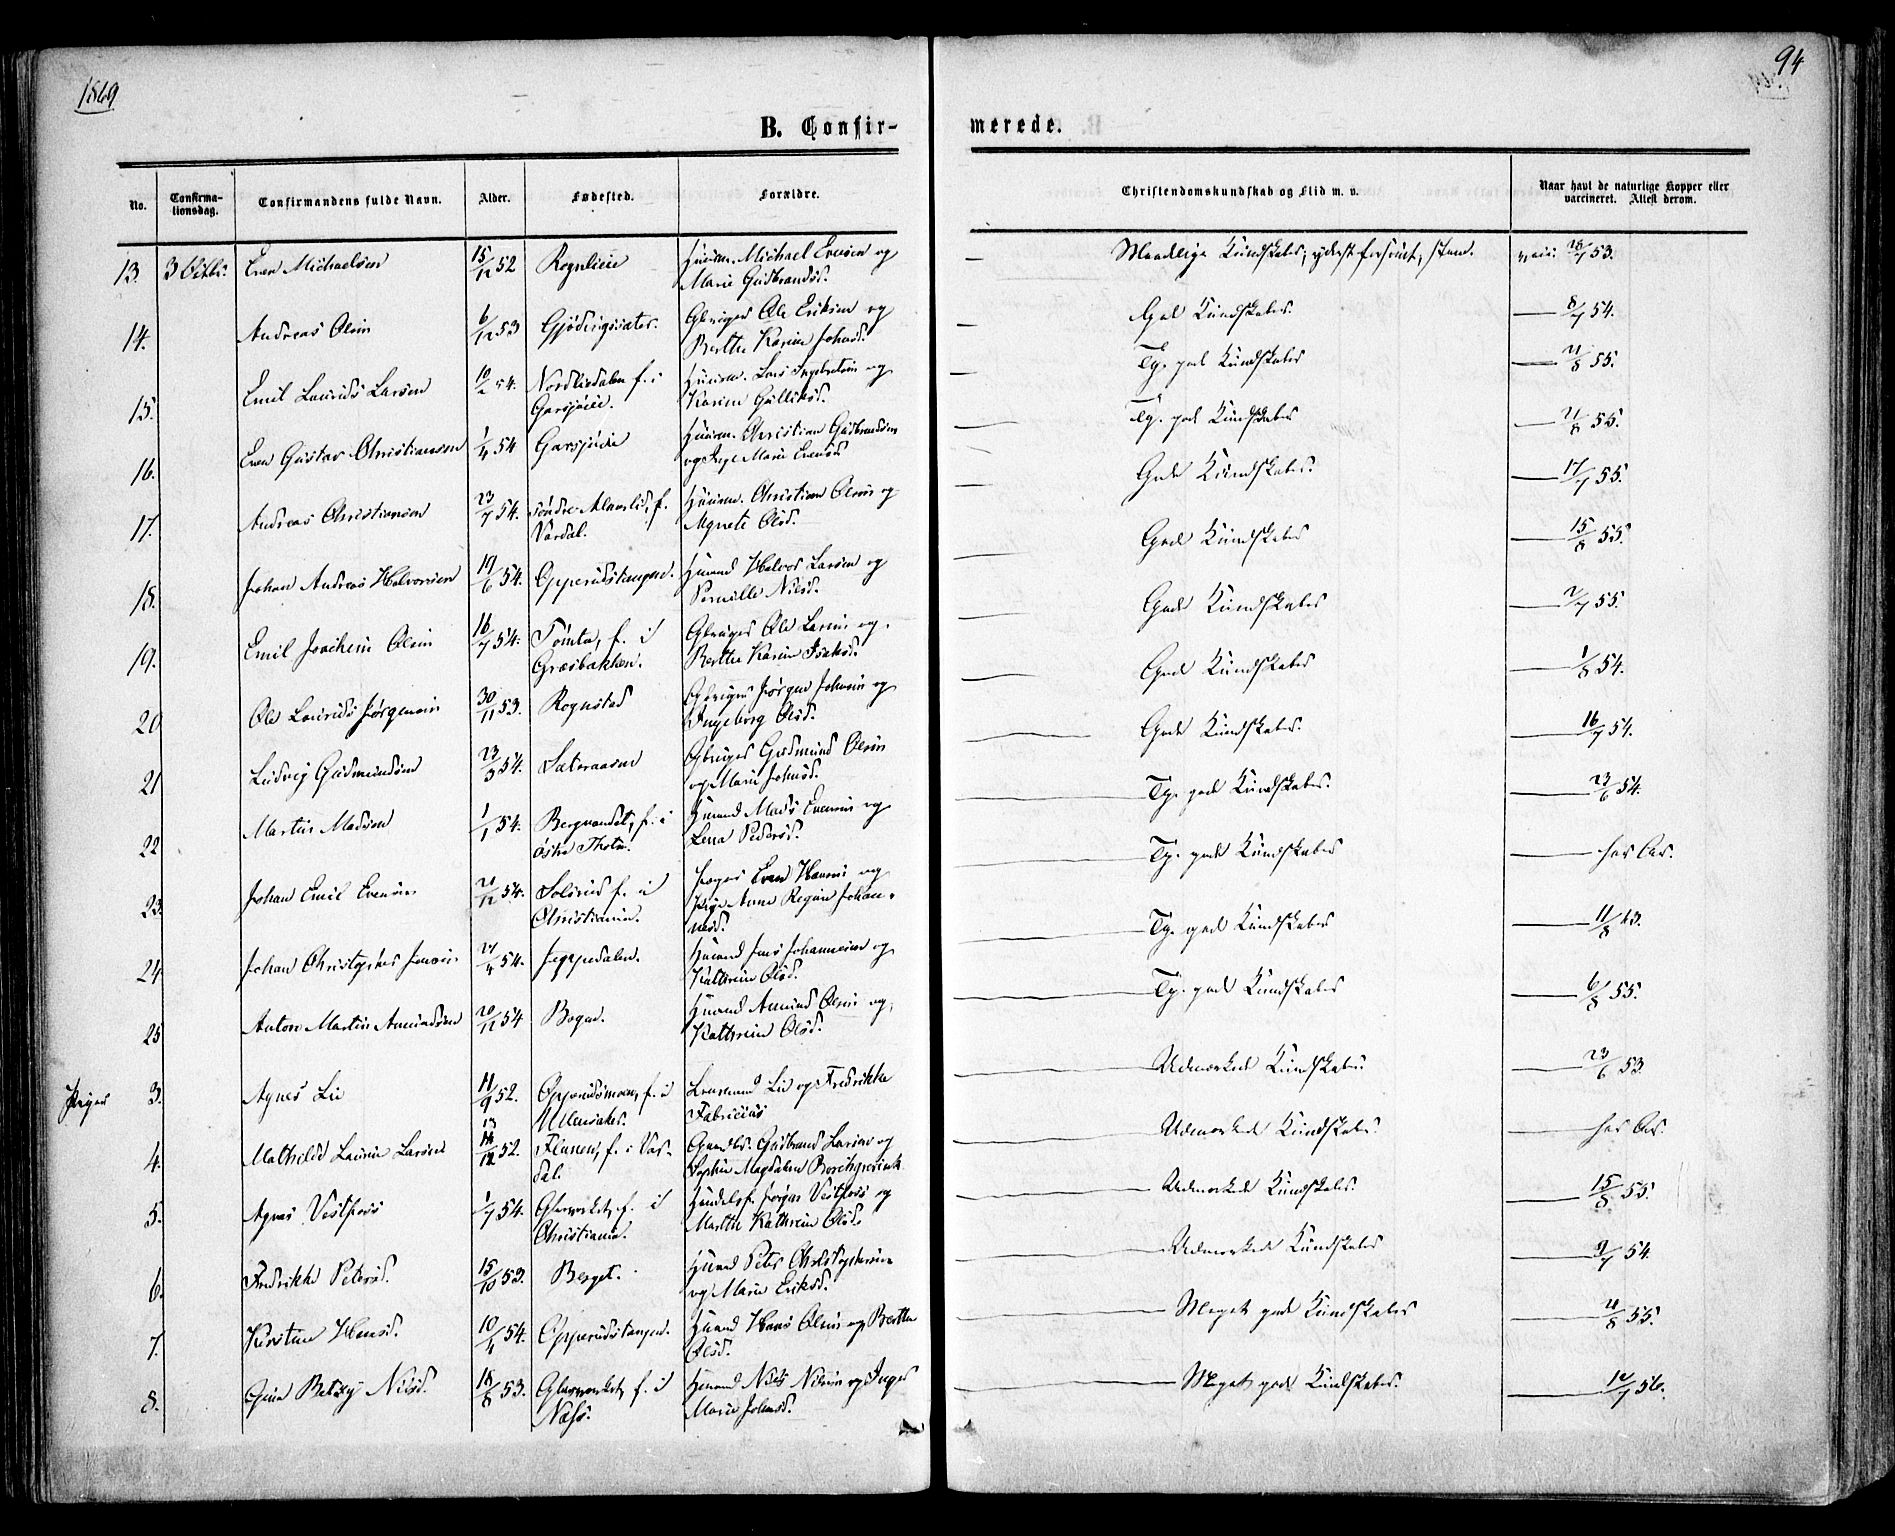 1869
94
B. Confir-
merede.
No.
Confirma-
tionsdag.
Confirmandens fulde Navn.
Alder.
Fødested.
Forældre.
Christendomskundskab og Flid m. v.
Naar havt de naturlige Kopper eller
vaccineret. Attest derom.
13. 3 Octbr. Even Michaelsen 15/12 52 Rognlieie Huusm. Michael Evensen og
Marie Gudbrandsd.
Maadelige Kundskaber, yderst forsømt, vacc. 18/7 53.
14. Andreas Olsen 6/12 53 Gjødingsæter. Gbruger Ole Eriksen og
Berthe Karine Johnsd.
God Kundskaber. 8/7 54.
15. Emil Laurids Larsen 10/2 54. Nordliedalen f. i
Garsjøeie.
Huusm. Lars Ingebretsen og
Karine Gulliksd.
Tg. god Kundskaber 21/8 55.
16. Even Gustav Christiansen 1/4 54 Garsjøeie Huusm. Christian Gudbrandsen
og Inge Marie Evensd.
Tg. god Kundskaber 21/8 55.
17. Andreas Christiansen 23/7 54. søndre Alm, f.
Vardal.
Huusm. Christian Olsen og
Agnete Olsd.
Gode Kundskaber. 17/7 55.
18. Johan Andreas Halvorsen 19/6 54. Opperudstangen. Huusm. Halvor Larsen og
Pernille Nilsd.
God Kundskaber 15/8 55.
19. Emil Jochem Olsen 16/7 54. Tømte, f. i
Græsbakken.
Gbruger Ole Larsen og
Berthe Karine Isaksd.
Gode Kundskaber 2/7 55.
20 Ole Laurids Jørgensen 30/11 53. Rognstad Gbruger Jørgen Johnsen og
Ingeborg Olsd.
God Kundskaber 1/8 54.
21 Ludvig Gudmundsen 23/3 54. Sæteraasen Gbruger Gudmund Olsen
og Marie Johnsd.
Gode Kundskaber. 16/7 54.
22 Martin Madsen 1/1 54. Bergvandet, f. i
Østre Thoten.
Huusmd Mads Evensen og
Lena Pedersd.
Tg. gode Kundskaber. 23/6 54.
23. Johan Emil Evensen 21/12 54. Solerud f. i
Christiania.
Even Hansen og
Pige Anne Regine Johan-
nesd.
Tg. gode Kundskaber har Ar.
24 Johan Christopher Jensen 21/4 54. Jeppedalen. Huusmd Jens Johannesen og
Kathrine Olsd.
Tg. god Kundskaber 11/8 43.
25 Anton Martin Amundsen 20/12 54 Bogen. Huusmd Amund Olsen og
Kathrine Olsd.
Tg. god Kundskaber 6/8 55.
Piger 3. Agnes Lie 11/9 52. Opperudsmoen, f. i
Ullensaker.
Lensmand Lie og Fredrikke
Fabricius
Udmærkede Kundskaber 23/6 53.
4. Mathilde Laurine Larsen 13/12 52. f. i Var-
dal.
Gudbrand Larsen og
Sophie Magdalene Borchgrevink
Udmærkede Kundskaber. har Ar.
5. Agnes Vestfoss 1/7 54. Glasværket, f. i
Christiania.
Handelsf. Jørgen Vestfoss og
Marthe Kathrine Olsd.
Udmærkede Kundskaber. 15/8 55.
6. Fredrikke Petersd. 15/10 53. Berget. Huusmd Peter Christophersen
og Marie Eriksd.
Udmærkede Kundskaber 9/7 54.
7. Kirstine Hansd. 10/4 54. Opperudstangen. Huusmd Hans Olsen og Berthe
Olsd.
Meget gode Kundskaber 21/8 55.
8. Gina Betzy Nilsd. 18/8 53. Glasværket, f. i
Næss.
Huusmd Nils Nilsen og Inger
Marie Johnsd.
Meget gode Kundskaber. 12/7 56.